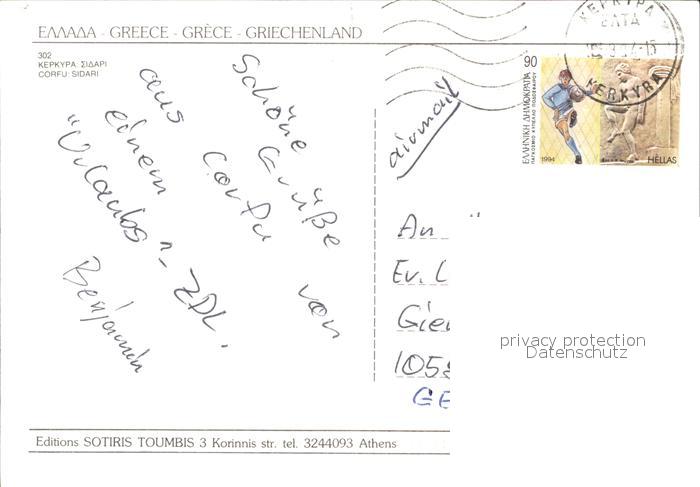 ΕΛΛΑΔΑ - GREECE - GRÈCE - GRIECHENLAND
302
ΚΕΡΚΥΡΑ: ΣΙΔΑΡΙ
CORFU: SIDARI
Schöne
Grüße
aus Corfu von
einem
"Urlaubs"- ZDL.
Benjamin
airmail
ΚΕΡΚΥΡΑ
ΕΛΤΑ
KERKYRA
90
ΕΛΛΗΝΙΚΗ ΔΗΜΟΚΡΑΤΙΑ
ΠΑΓΚΟΣΜΙΟ ΚΥΠΕΛΛΟ ΠΟΔΟΣΦΑΙΡΟΥ
1994
HELLAS
An
Ev.
1059
GE
privacy protection
Datenschutz
Editions SOTIRIS TOUMBIS 3 Korinnis str. tel. 3244093 Athens